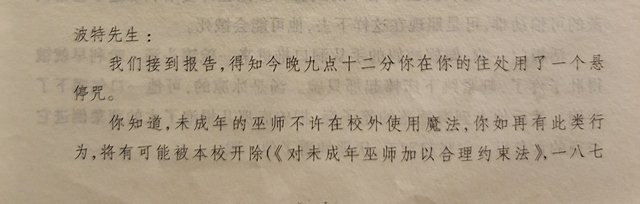 波特先生：
我们接到报告，得知今晚九点十二分你在你的住处用了一个悬
停咒。
你知道，未成年的巫师不许在校外使用魔法，你如再有此类行
为，将有可能被本校开除(《对未成年巫师加以合理约束法》，一八七